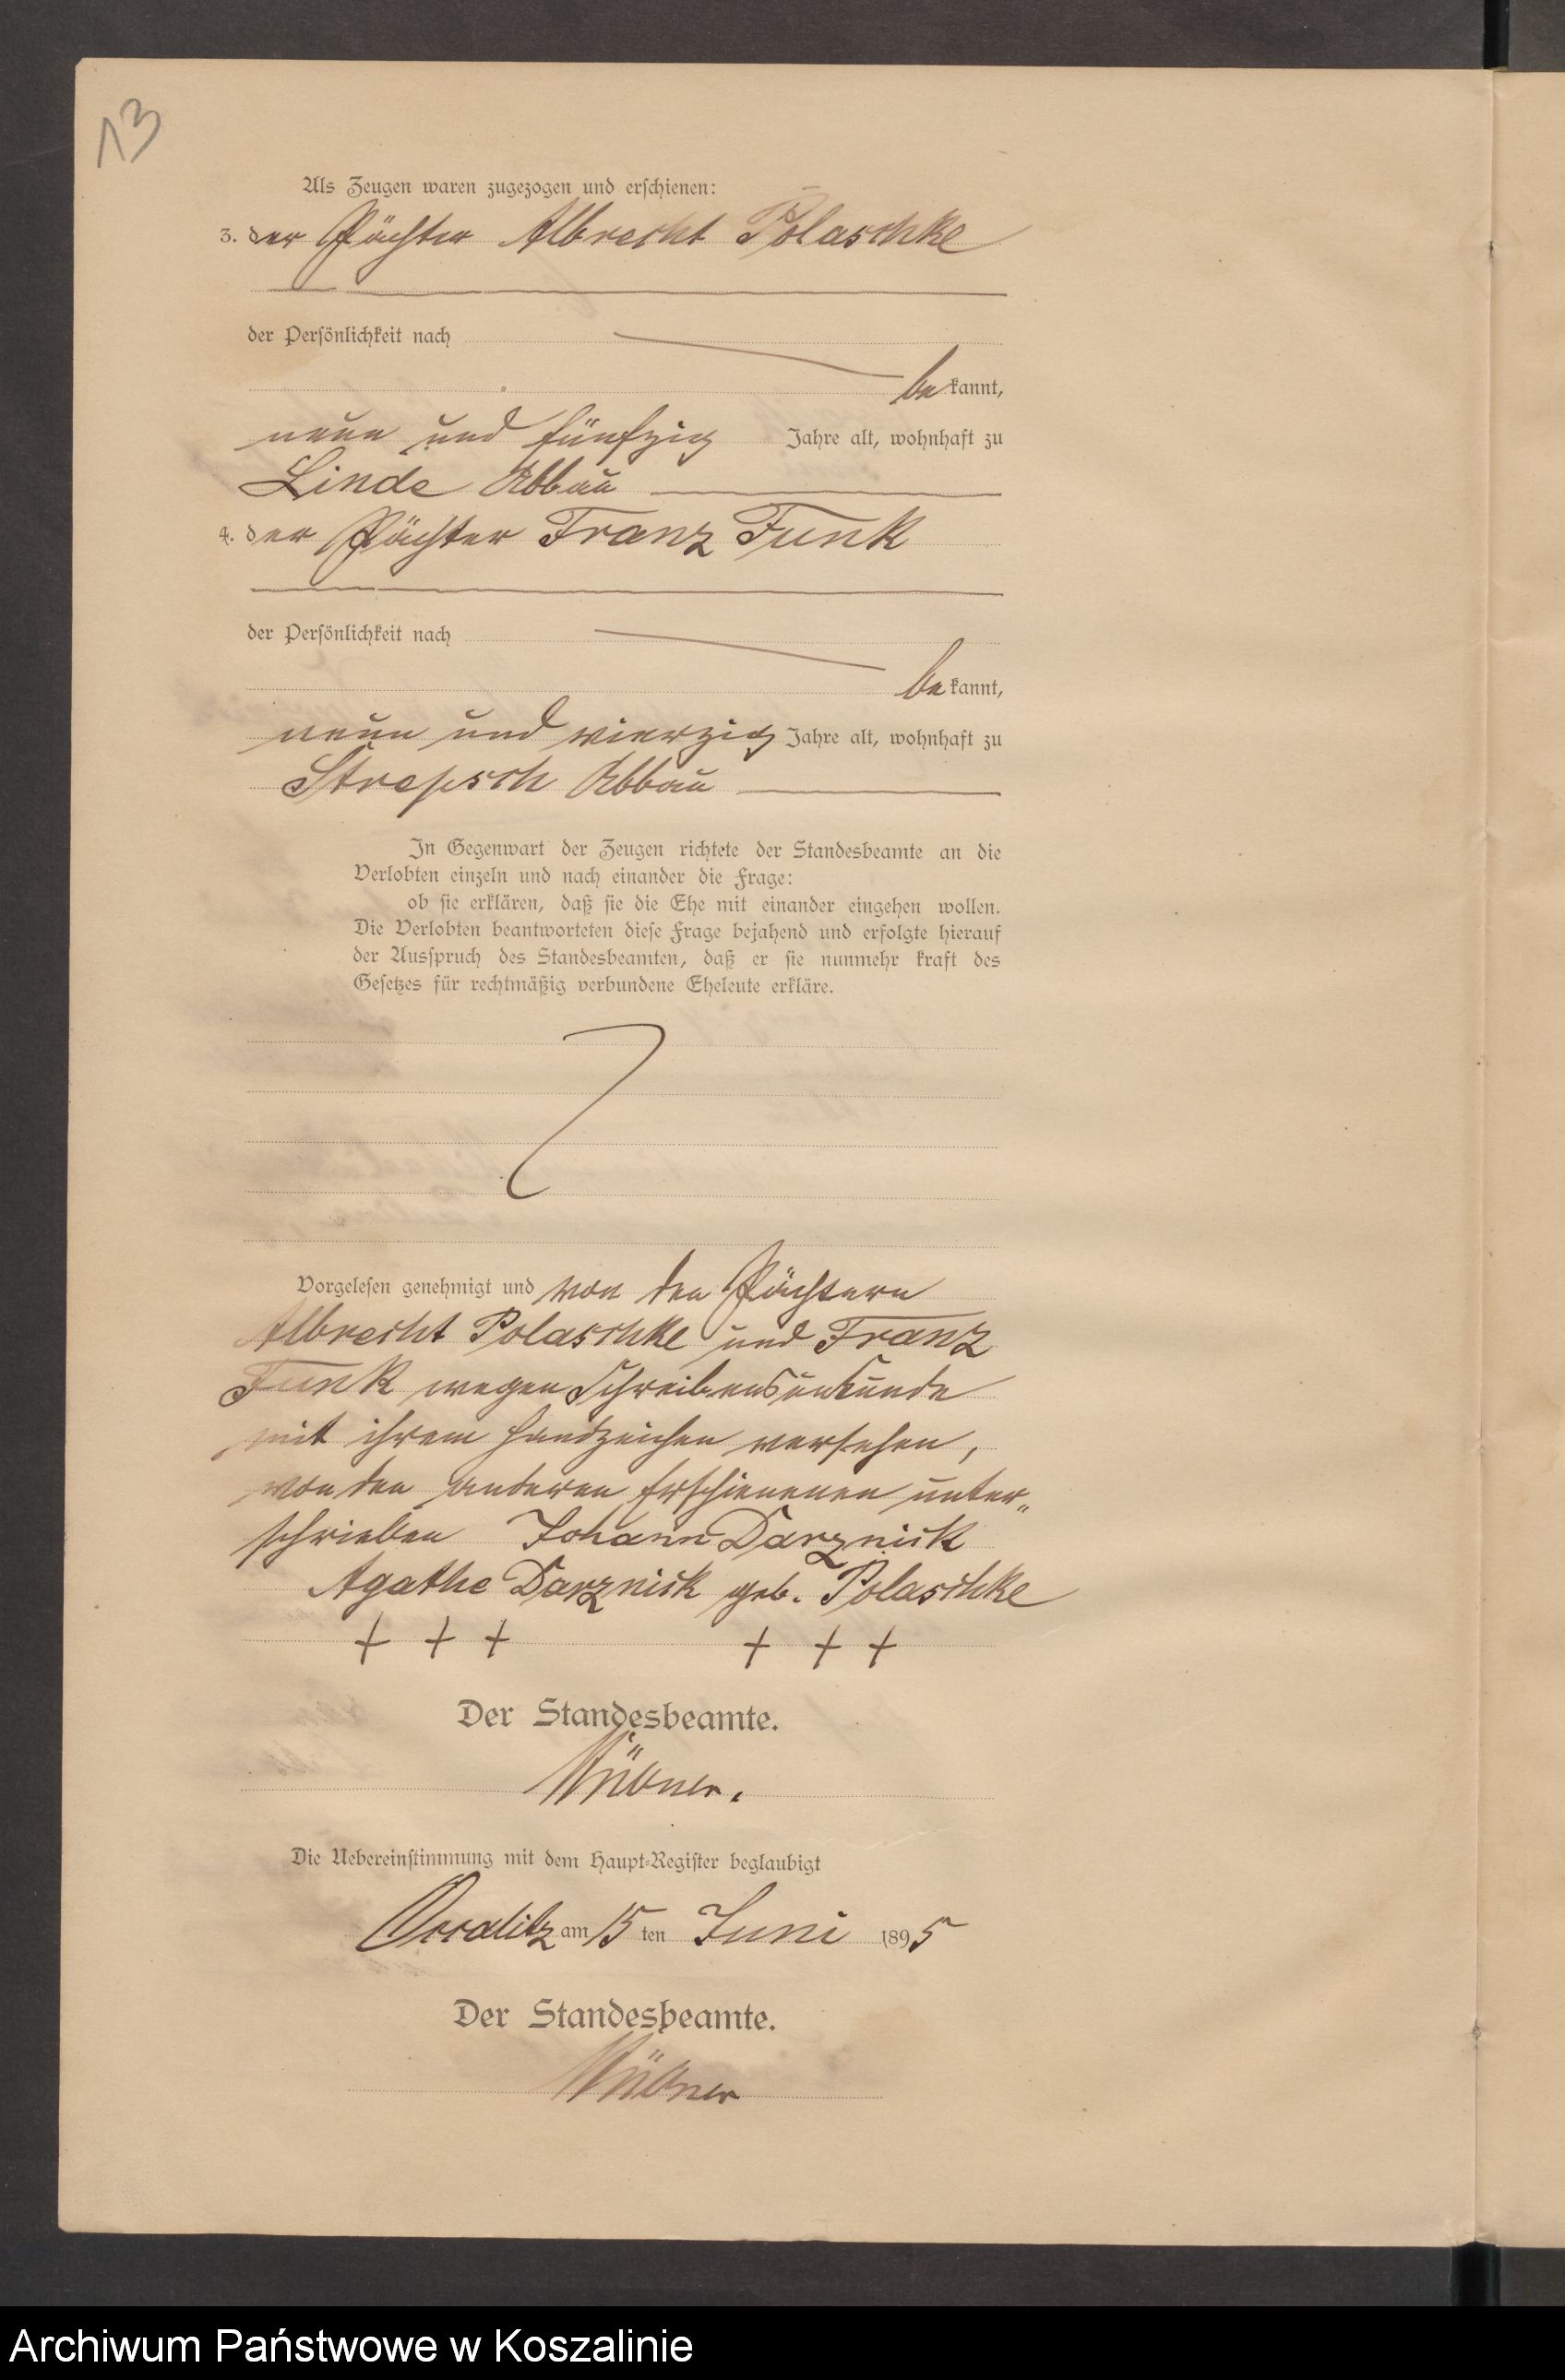 13
Als Zeugen waren zugezogen und erschienen:
3. der Pächter Albrecht Polaschke
der Persönlichkeit nach
be kannt,
neun und fünfzig Jahre alt, wohnhaft zu
Linde Abbau
4. der Pächter Franz Funk
der Persönlichkeit nach
be kannt,
neun und vierzig Jahre alt, wohnhaft zu
Strepsch Abbau
In Gegenwart der Zeugen richtete der Standesbeamte an die
Verlobten einzeln und nach einander die Frage:
ob sie erklären, daß sie die Ehe mit einander eingehen wollen.
Die Verlobten beantworteten diese Frage bejahend und erfolgte hierauf
der Ausspruch des Standesbeamten, daß er sie nunmehr kraft des
Gesetzes für rechtmäßig verbundene Eheleute erkläre.
Vorgelesen genehmigt und von den Pächtern
Albrecht Polaschke und Franz
Funk wegen Schreibensunkunde
mit ihrem Handzeichen versehen,
von den anderen Erschienenen unter„
schrieben Johann Darznick
Agathe Darznick geb. Polaschke
+ + + + + +
Der Standesbeamte.
Die Uebereinstimmung mit dem Haupt-Register beglaubigt
am 15 ten Juni 1895
Der Standesbeamte.
Archiwum Państwowe w Koszalinie